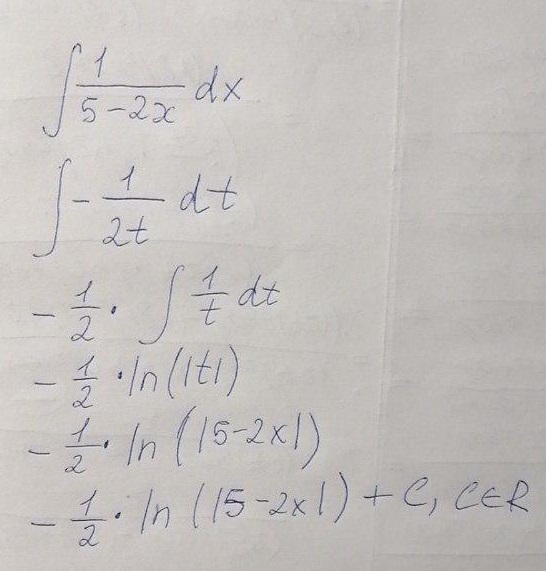 ∫ 1/(5-2x) dx
∫ - 1/(2t) dt
- 1/2 · ∫ 1/t dt
- 1/2 · ln(|t|)
- 1/2 · ln(|5-2x|)
- 1/2 · ln(|5-2x|) + C, C∈R